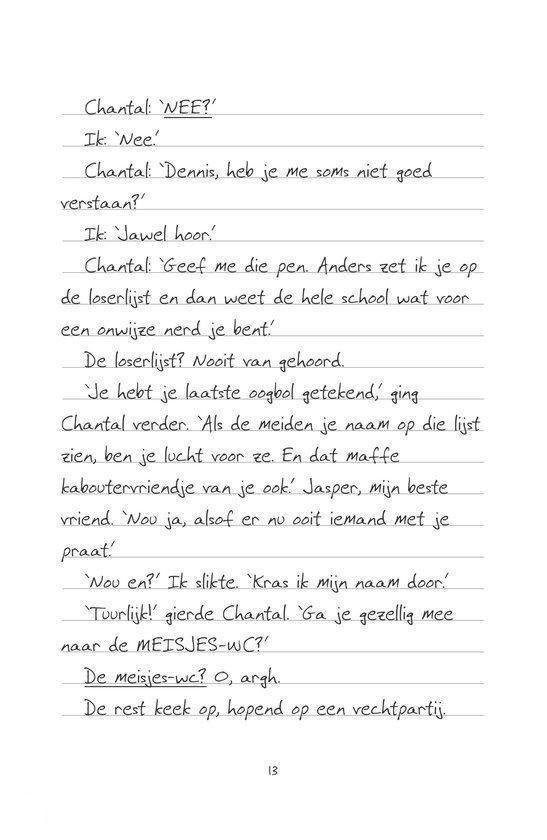 Chantal: ‘NEE?’
Ik: ‘Nee.’
Chantal: ‘Dennis, heb je me soms niet goed
verstaan?’
Ik: ‘Jawel hoor.’
Chantal: ‘Geef me die pen. Anders zet ik je op
de loserlijst en dan weet de hele school wat voor
een onwijze nerd je bent.’
De loserlijst? Nooit van gehoord.
‘Je hebt je laatste oogbol getekend,’ ging
Chantal verder. ‘Als de meiden je naam op die lijst
zien, ben je lucht voor ze. En dat maffe
kaboutervriendje van je ook.’ Jasper, mijn beste
vriend. ‘Nou ja, alsof er nu ooit iemand met je
praat.’
‘Nou en?’ Ik slikte. ‘Kras ik mijn naam door.’
‘Tuurlijk!’ gierde Chantal. ‘Ga je gezellig mee
naar de MEISJES-WC?’
De meisjes-wc? O, argh.
De rest keek op, hopend op een vechtpartij.
13